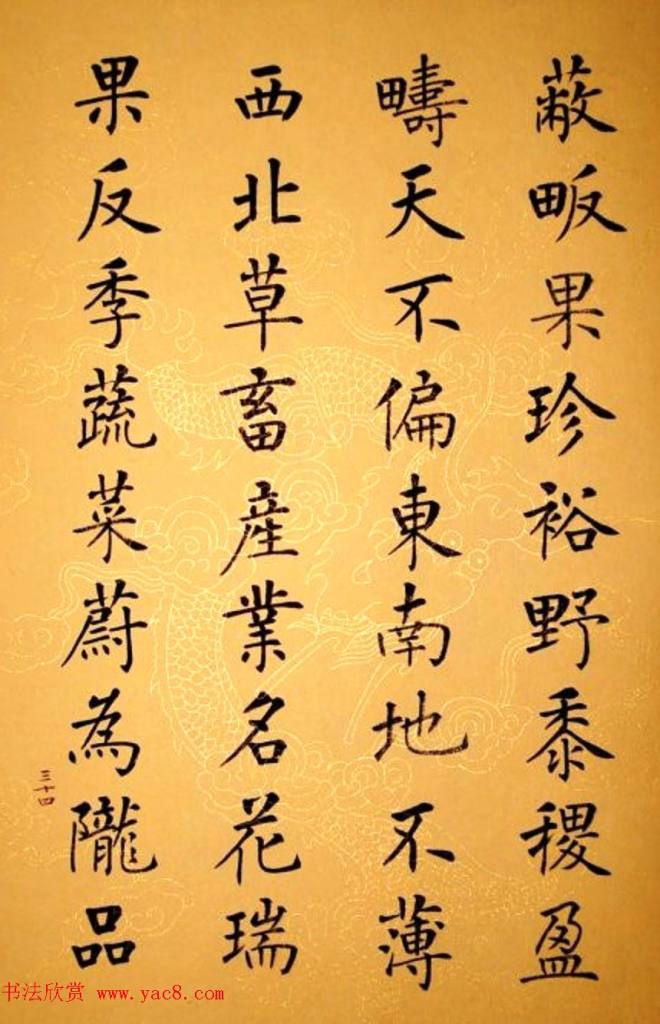 蔽畈果珍裕野黍稷盈
疇天不偏東南地不薄
西北草畜產業名花瑞
果反季蔬菜蔚為隴品
三十四
书法欣赏 www.yac8.com